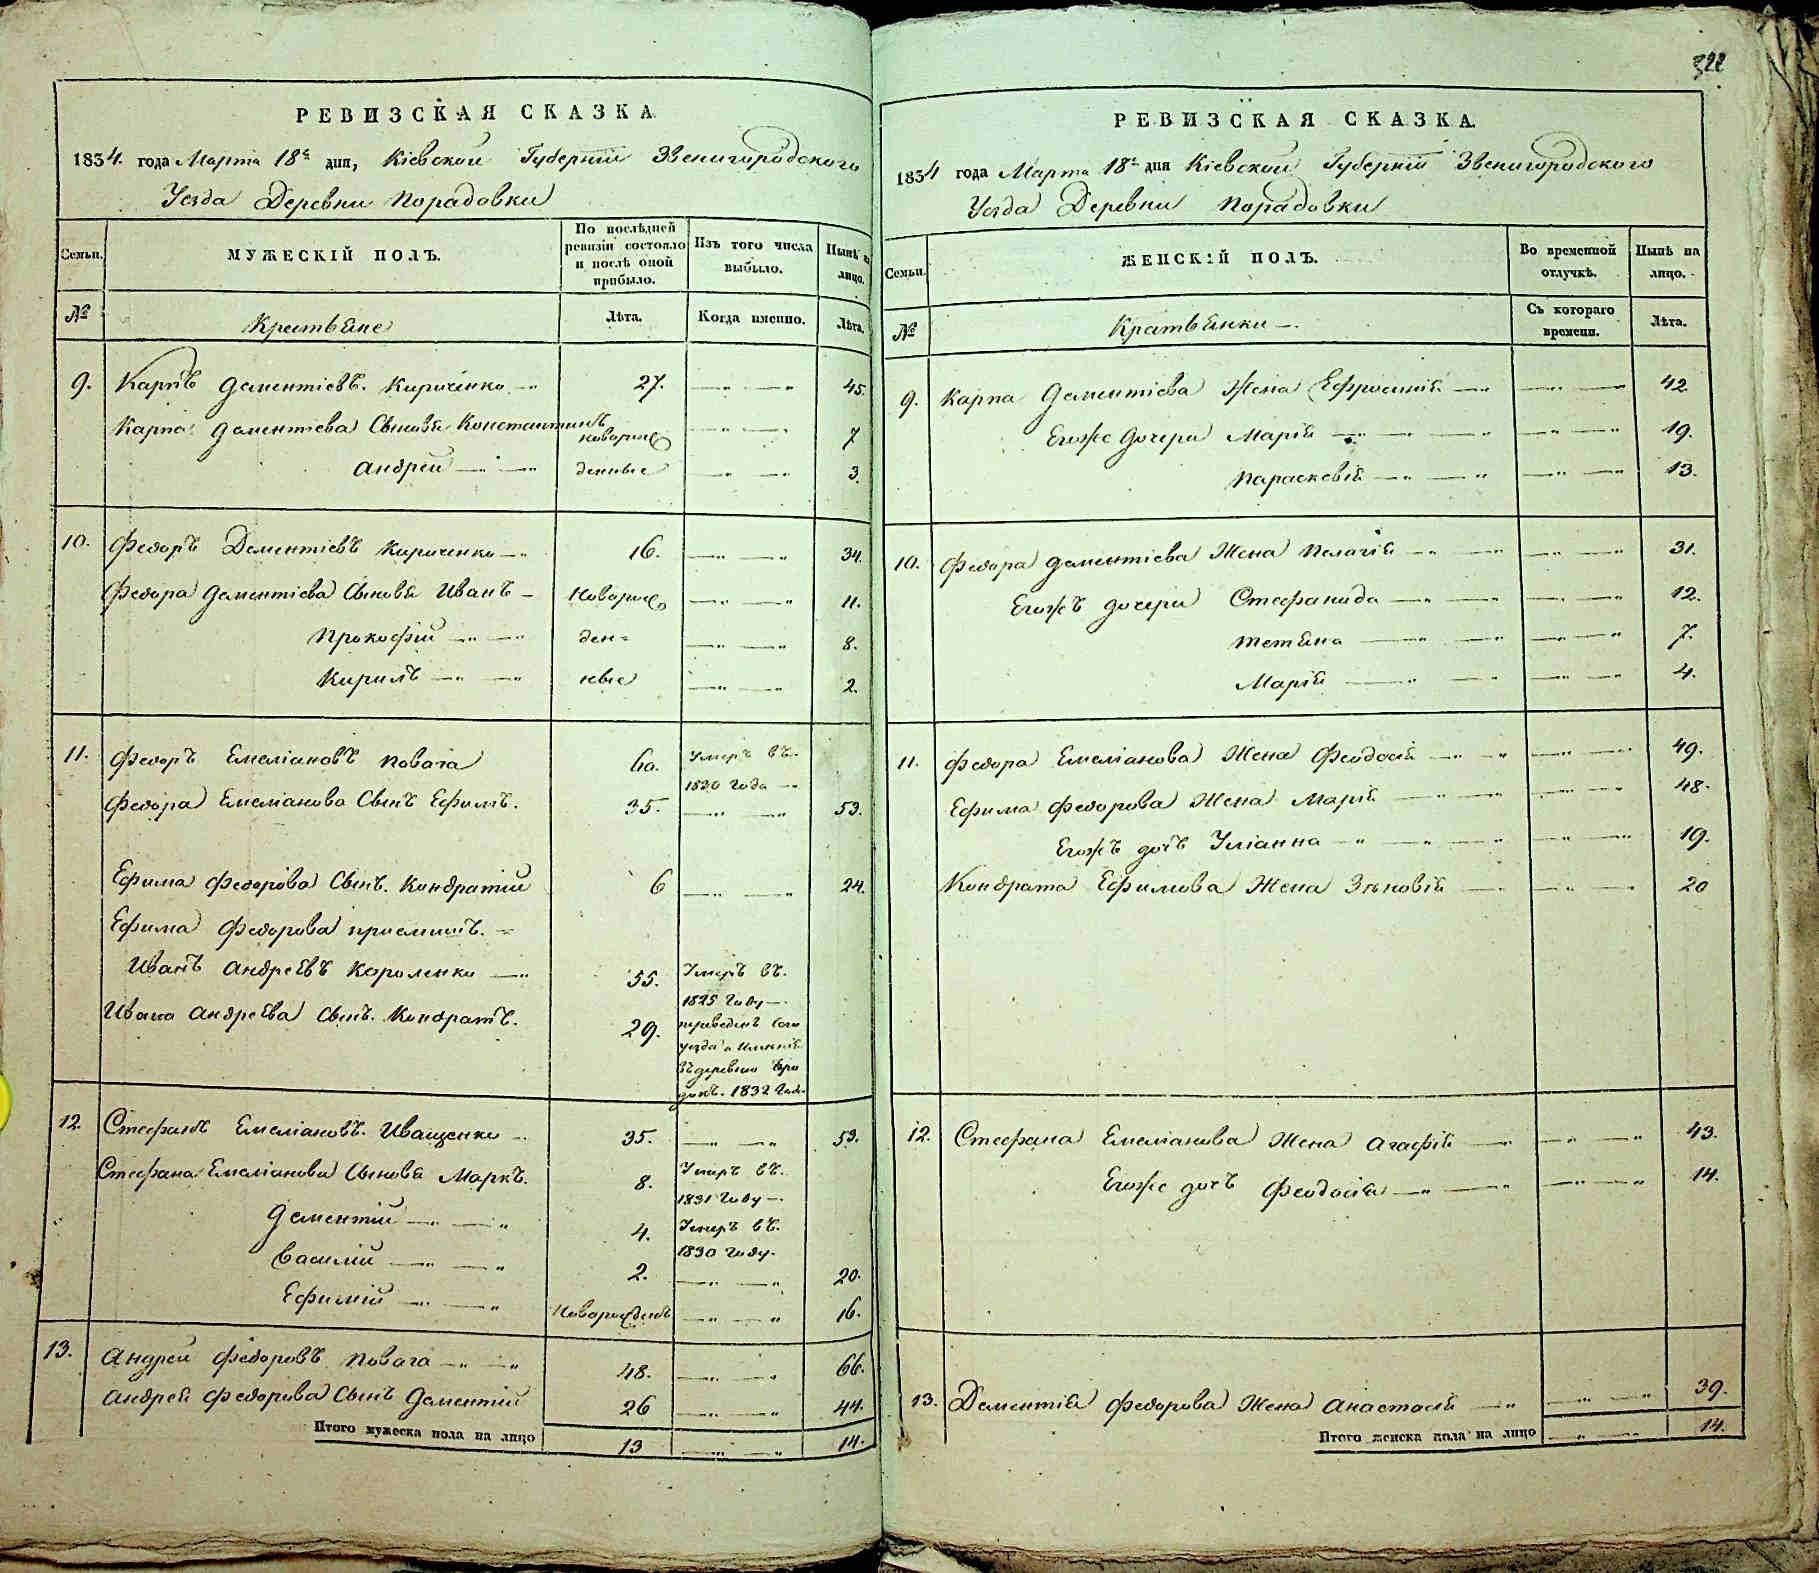 322
РЕВИЗСКАЯ СКАЗКА
1834. года Марта 18го дня, Кіевской Губерніи Звенигородского
Уезда Деревни Порадовки
Семьи.
МУЖЕСКІЙ ПОЛЪ.
По послѣдней ревизіи состояло и послѣ оной прибыло.
Изъ того числа выбыло.
Нынѣ на лицо.
№
Крестьяне
Лѣта.
Когда именно.
Лѣта.
9. Карпъ Дементіевъ Кириченко 27. 45.
Карпа Дементіева Сыновья Константинъ новорож 7
Андрей денные 3.
10. Федоръ Дементіевъ Кириченко 16. 34.
Федора Дементіева Сыновья Иванъ новорож 11.
Прокофій ден= 8.
Кирилъ ные 2.
11. Федоръ Емеліановъ Повага 60. Умеръ въ
1830 года
Федора Емеліанова Сынъ Ефимъ. 35. 53.
Ефима Федорова Сынъ Кондратій 6 24.
Ефима Федорова приемышъ.
Иванъ Андреевъ Короленко 55. Умеръ въ
1825 году
Ивана Андреева Сынъ Кондратъ. 29. переведенъ сего
уезда
въ деревню
1832 года
12. Стефанъ Емеліановъ Иващенко 35. 53.
Стефана Емеліанова Сыновья Маркъ. 8. Умеръ въ
1831 году
Дементій 4. Умеръ въ
1830 году.
Василій 2. 20.
Ефимій новорожденъ 16.
13. Андрей Федоровъ Повага 48. 66.
Андрея Федорова Сынъ Дементій 26 44.
Итого мужеска пола на лицо 13 14.
РЕВИЗСКАЯ СКАЗКА.
1834 года Марта 18го дня Кіевской Губерніи Звенигородского
Уезда Деревни Порадовки
Семьи.
ЖЕНСКІЙ ПОЛЪ.
Во временной отлучкѣ.
Нынѣ на лицо.
№
Крестьянки
Съ котораго времени.
Лѣта.
9. Карпа Дементіева Жена Ефросинія 42.
Егоже дочери Марія 19.
Параскевія 13.
10. Федора Дементіева Жена Пелагія 31.
Егожъ дочери Стефанида 12.
Тетяна 7.
Марія 4.
11. Федора Емеліанова Жена Феодосія 49.
Ефима Федорова Жена Марія 48.
Егожъ дочь Уліанна 19.
Кондрата Ефимова Жена Зѣновія 20
12. Стефана Емеліанова Жена Агафія 43.
Егоже дочь Феодосія 14.
13. Дементія Федорова Жена Анастасія 39.
Итого женска пола на лицо 14.